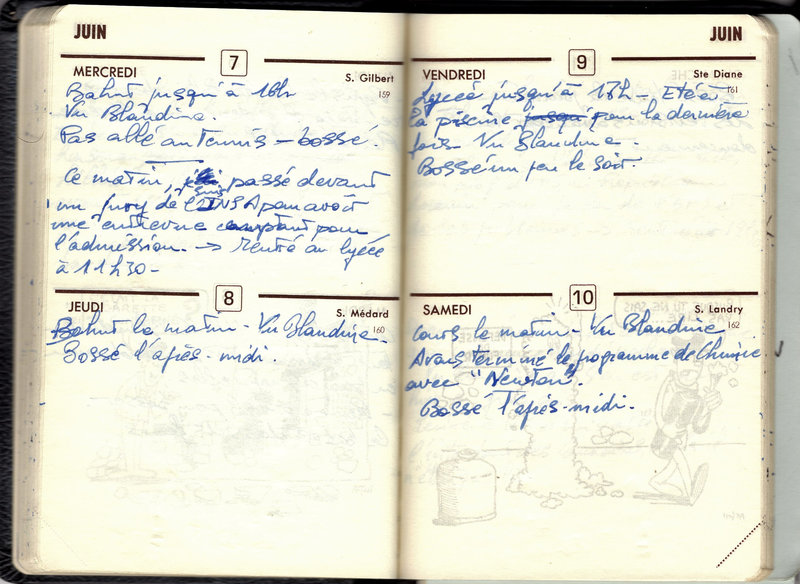 JUIN
7
MERCREDI
S. Gilbert
159
Bahut jusqu'à 16h
Vu Blandine.
Pas allé au Tennis – bossé.
Ce matin, je suis passé devant
un jury de l'INSA pour avoir
une entrevue comptant pour
l'admission. → Rentré au lycée
à 11h30 –
8
JEUDI
S. Médard
160
Bahut le matin – Vu Blandine –
Bossé l'après-midi.
JUIN
9
VENDREDI
Ste Diane
161
Lycée jusqu'à 15h – Eté à
la piscine jusqu' pour la dernière
fois. Vu Blandine –
Bossé un peu le soir.
10
SAMEDI
S. Landry
162
Cours le matin – Vu Blandine
Avons terminé le programme de Chimie
avec "Newton".
Bossé l'après-midi.